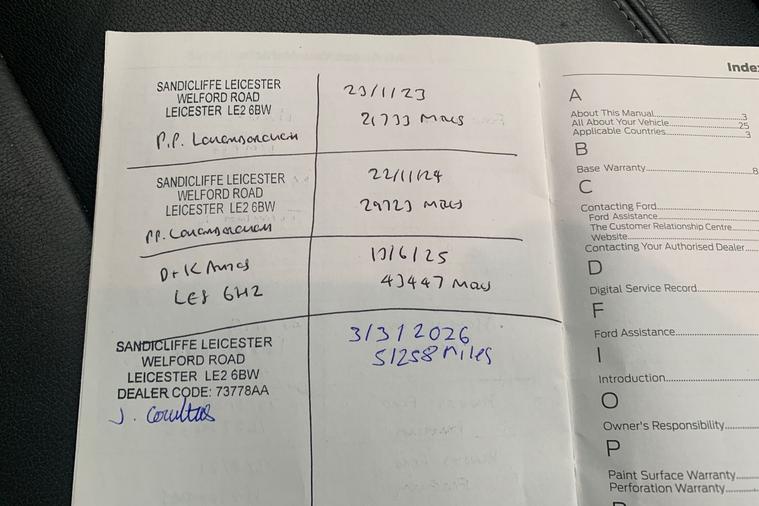 SANDICLIFFE LEICESTER
WELFORD ROAD
LEICESTER LE2 6BW
P.P. Loughborough
23/1/23
21733 Miles
SANDICLIFFE LEICESTER
WELFORD ROAD
LEICESTER LE2 6BW
PP. Loughborough
22/11/24
29723 Miles
D+K
LE8 6HZ
13/6/25
43447 Miles
SANDICLIFFE LEICESTER
WELFORD ROAD
LEICESTER LE2 6BW
DEALER CODE: 73778AA
J.
3/3/2026
51258 Miles
Index
A
About This Manual 3
All About Your Vehicle 25
Applicable Countries 3
B
Base Warranty 8
C
Contacting Ford
Ford Assistance
The Customer Relationship Centre
Website
Contacting Your Authorised Dealer
D
Digital Service Record
F
Ford Assistance
I
Introduction
O
Owner's Responsibility
P
Paint Surface Warranty
Perforation Warranty